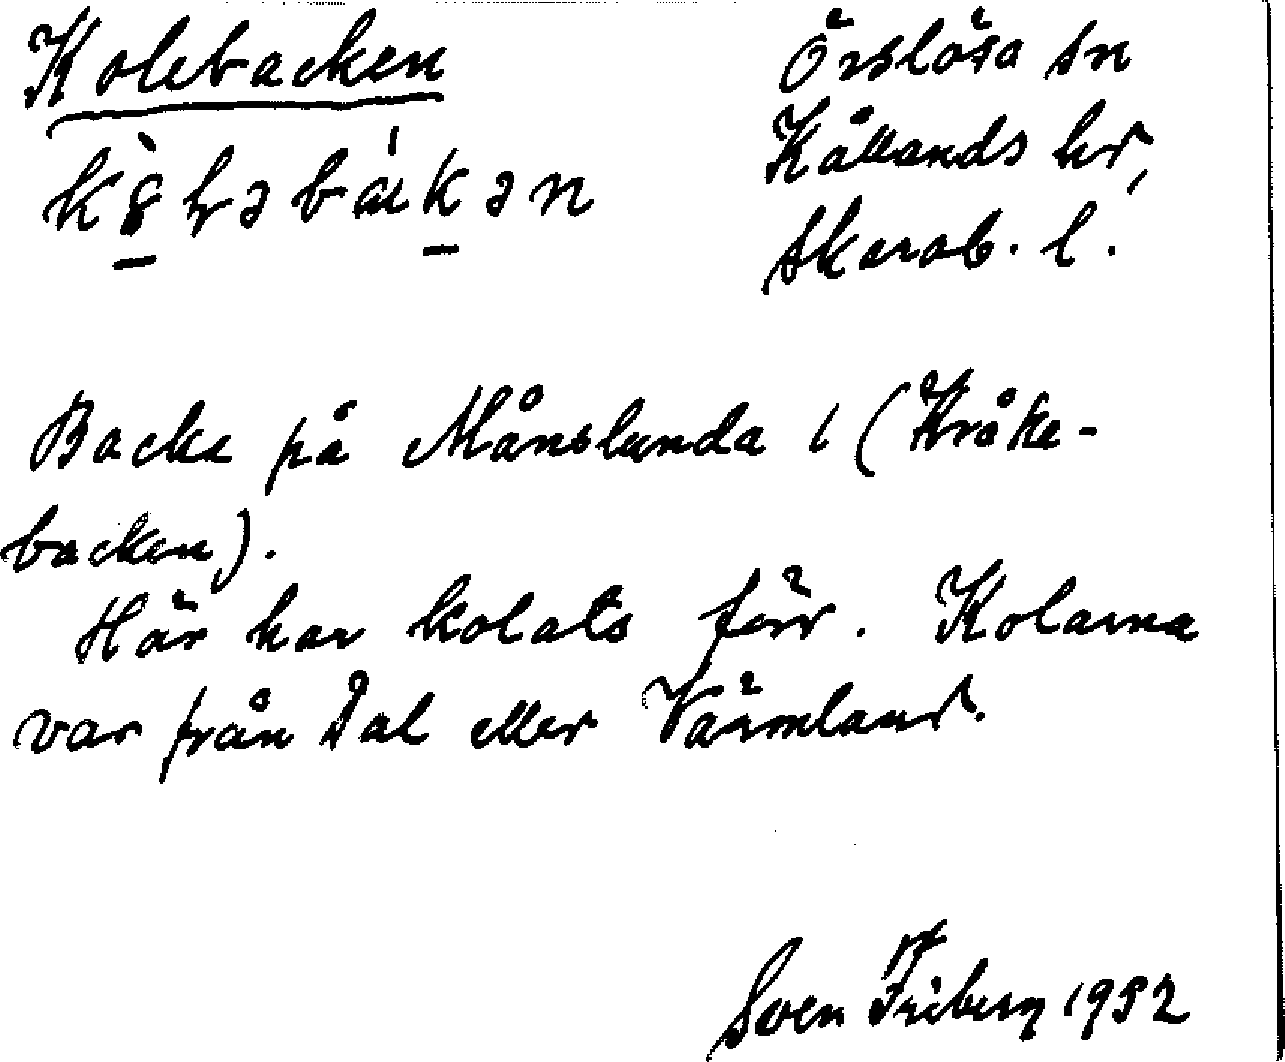 Kolebacken
Örslösa sn
Kållands hd,
Skarab. l.
Backe på Månslunda 1 (Kråke-
backen).
Här har kolats förr. Kolarna
var från Dal eller Värmland.
Sven Friberg 1952